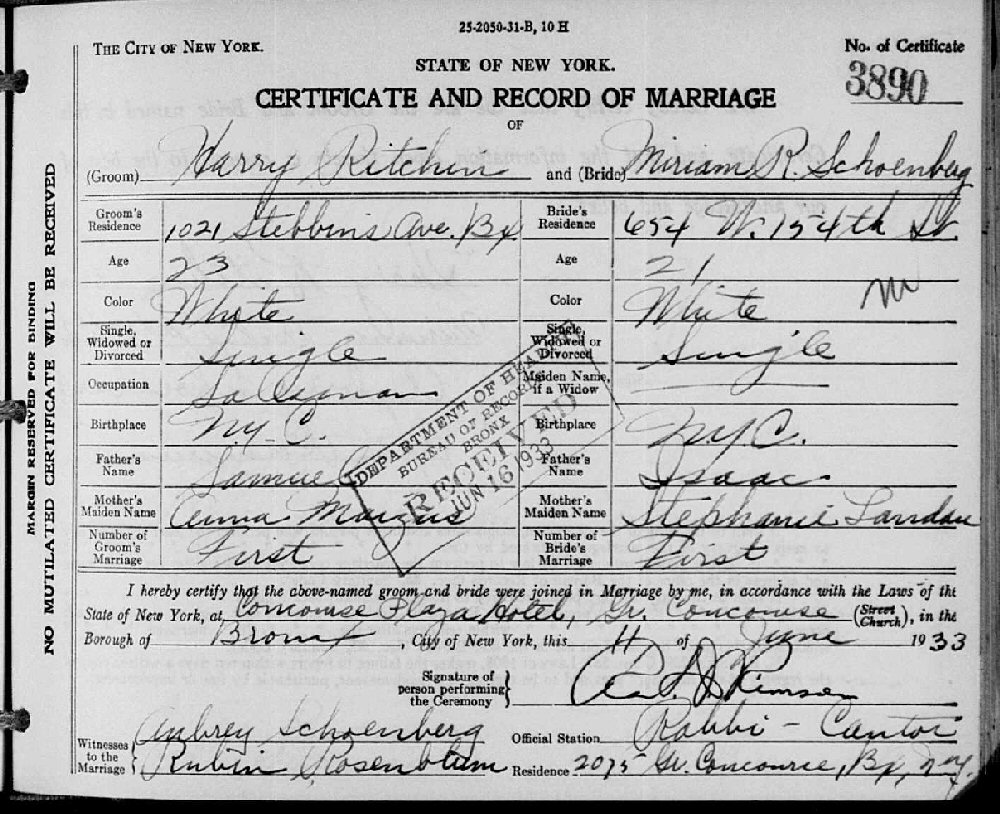 25-2050-31-B, 10 H
THE CITY OF NEW YORK.
No. of Certificate
3890
STATE OF NEW YORK.
CERTIFICATE AND RECORD OF MARRIAGE
OF
(Groom) Harry Ritchin and (Bride) Miriam R. Schoenberg
Groom's Residence 1021 Stebbins Ave. Bx Bride's Residence 654 W. 154th St.
Age 23 Age 21
Color White Color White
Single, Widowed or Divorced Single Single, Widowed or Divorced Single
Occupation Salesman Maiden Name, if a Widow
Birthplace N.Y.C. Birthplace N.Y.C.
Father's Name Samuel Father's Name Isaac
Mother's Maiden Name Anna Marcus Mother's Maiden Name Stephanie Landau
Number of Groom's Marriage First Number of Bride's Marriage First
DEPARTMENT OF HEALTH
BUREAU OF RECORDS
BRONX
RECEIVED
JUN 16 1933
I hereby certify that the above-named groom and bride were joined in Marriage by me, in accordance with the Laws of the
State of New York, at Concourse Plaza Hotel, Gr. Concourse (Street Church), in the
Borough of Bronx, City of New York, this 11 of June 1933
Signature of person performing the Ceremony
Witnesses to the Marriage Aubrey Schoenberg Official Station Rabbi - Cantor
Rubin Rosenblum Residence 2075 Gr. Concourse, Bx, N.Y.
MARGIN RESERVED FOR BINDING
NO MUTILATED CERTIFICATE WILL BE RECEIVED